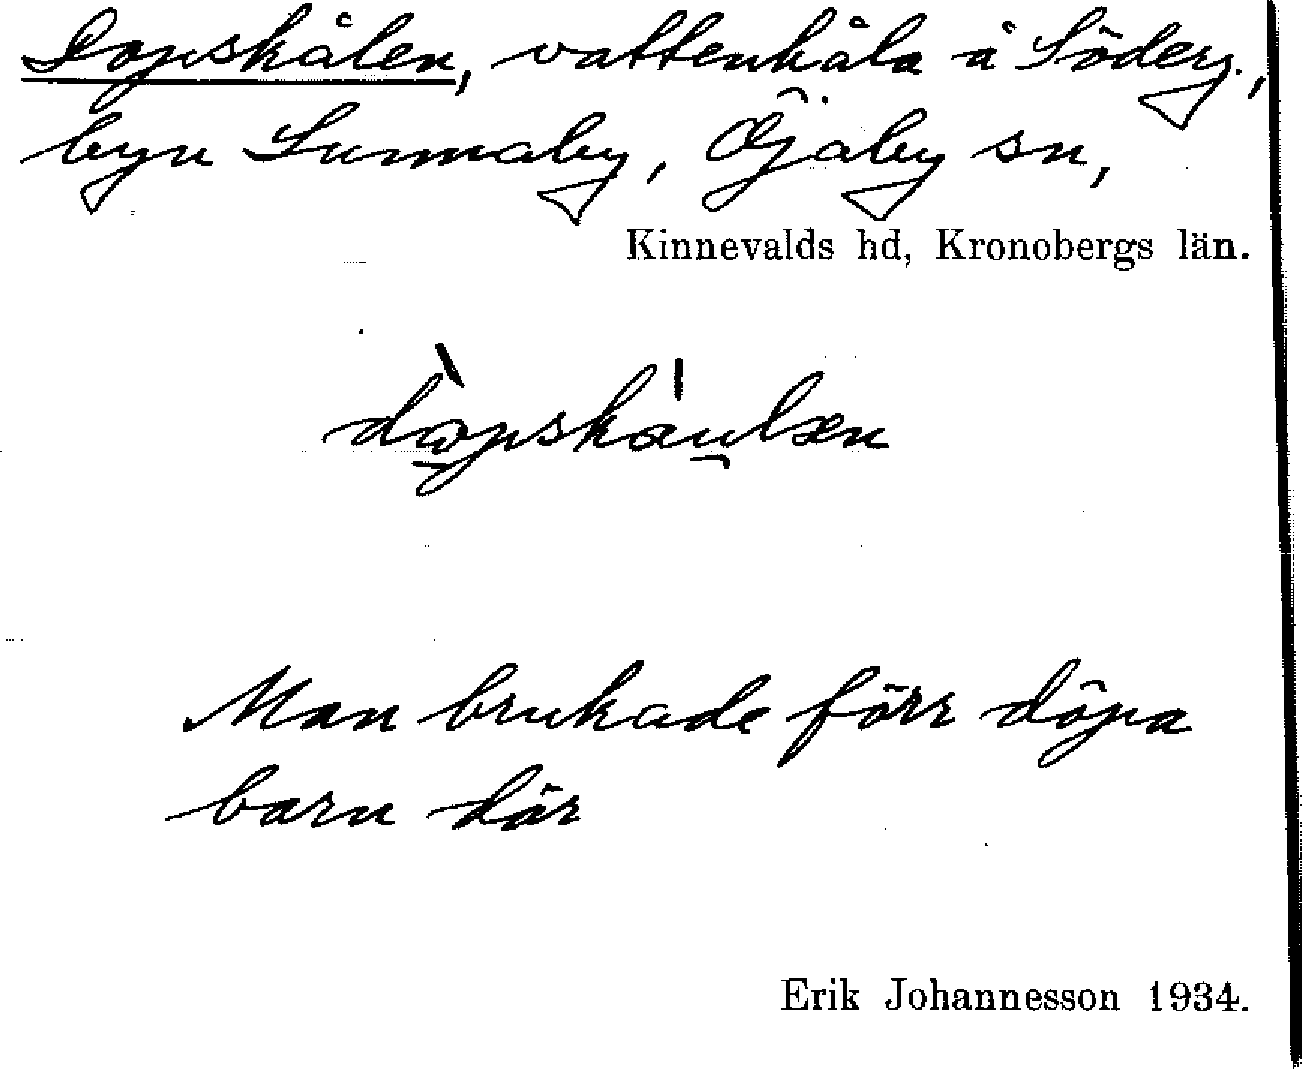 Dopskålen, vattenhåla å Söderg.,
byn Sunnaby, Öjaby sn,
Kinnevalds hd, Kronobergs län.
dopskaulæn
Man brukade förr döpa
barn där
Erik Johannesson 1934.